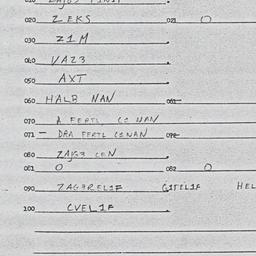 020 Z EKS 021 O
030 Z1M
040 VAZ3
050 AXT
060 HALB NAN 061
070 A FERTL CONAN
071 — DRA FERTL CONAN 072
080 ZAJG3 CEN
081 O 082 O
090 ZAG3REL1F G1FEL1F HEL
100 CVEL1F